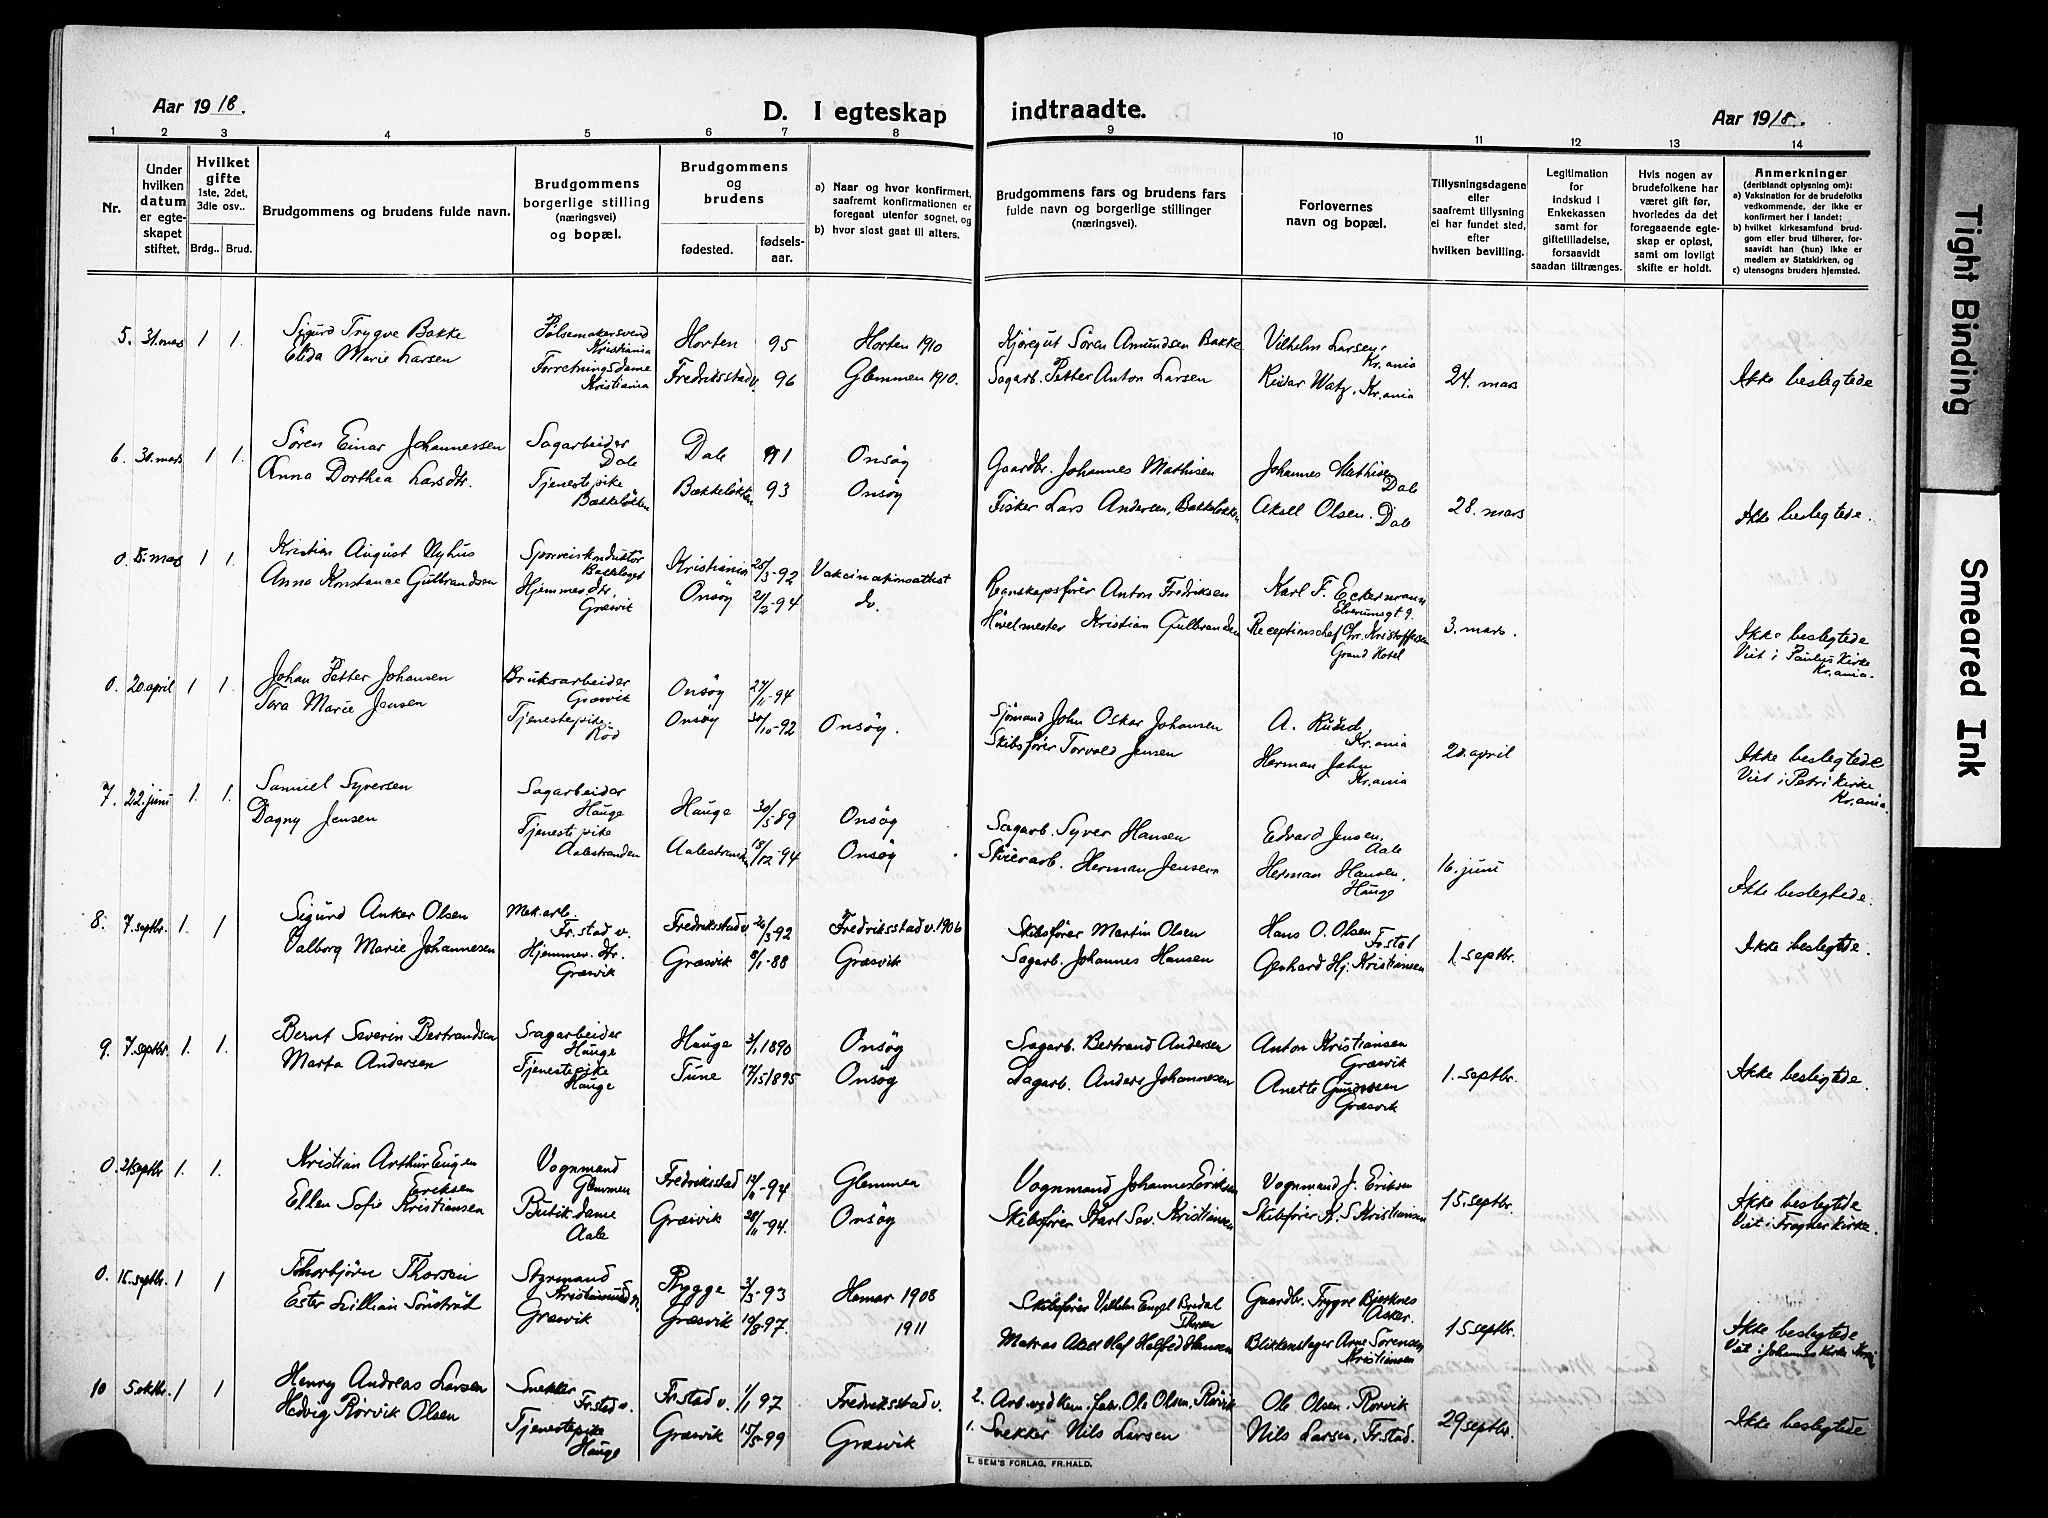 Aar 1918.
D. I egteskap indtraadte.
Aar 1918.
1 2 3 4 5 6 7 8 9 10 11 12 13 14
Nr.
Under hvilken datum er egteskapet stiftet.
Hvilket gifte 1ste, 2det, 3dle osv..
Brdg.. Brud.
Brudgommens og brudens fulde navn.
Brudgommens borgerlige stilling (næringsvei) og bopæl.
Brudgommens og brudens
fødested.
fødsels-aar.
a) Naar og hvor konfirmert, saafremt konfirmationen er foregaat utenfor sognet, og
b) hvor sidst gaat til alters.
Brudgommens fars og brudens fars fulde navn og borgerlige stillinger (næringsvei).
Forlovernes navn og bopæl.
Tillysningsdagene eller saafremt tillysning ei har fundet sted, efter hvilken bevilling.
Legitimation for indskud i Enkekassen samt for giftetilladelse, forsaavidt saadan tiltrænges.
Hvis nogen av brudefolkene har været gift før, hvorledes da det foregaaende egteskap er opløst, samt om lovligt skifte er holdt.
Anmerkninger (deriblandt oplysning om): a) Vaksination for de brudefolks vedkommende, der ikke er konfirmert her i landet; b) hvilket kirkesamfund brudgom eller brud tilhører, forsaavidt han (hun) ikke er medlem av Statskirken, og c) utensogns bruders hjemsted.
5. 31. mars 1 1. Sigurd Trygve Bakke Pølsemakersvend Kristiania Horten 95 Horten 1910 Kjøregut Sören Amundsen Bakke Vilhelm Larsen, Kr.ania
Elida Marie Larsen Forretningsdame Kristiania Fredriksstad v. 96 Glemmen 1910. Sagarb. Petter Anton Larsen Reidar Watz, Kr.ania 24. mars Ikke beslegtede
6. 31. mars 1 1. Sören Einar Johannessen Sagarbeider Dale Dale 91 Onsöy Gaardbr. Johannes Mathisen Johannes Mathisen Dale
Anna Dorthea Larsdtr. Tjenestepike Bækkeløkken Bækkeløkken 93 Onsöy Fisker Lars Andersen, Bækkeløkken Aksel Olsen. Dale 28. mars Ikke beslegtede.
0. mars 1 1. Kristian August Nyhus Sporveiskonduktör Kristiania 25/3-92 Vakcinationsattest Regnskapsfører Anton Fredriksen Karl F. Eckermann Elverumsgt 9.
Anna Konstance Gulbrandsen Hjemmedtr. Græsvik Onsöy 2/2-94 do. Hövelmester Kristian Gulbrandsen Receptionschef Chr. Kristoffersen Grand Hotel 3. mars. Ikke beslegtede Viet i Paulus Kirke Kr.ania.
0. 20 april 1 1. Johan Petter Johansen Bruksarbeider Græsvik Onsöy 27/11-94 Sjömand John Oskar Johansen A. Kr.ania
Tora Marie Jensen Tjenestepike. Rød Onsöy 30/10-92 Onsöy. Skibsfører Torvald Jensen Herman Jahn Kr.ania 20. april Ikke beslegtede Viet i Petri Kirke Kr.ania.
7. 22. juni 1. 1. Samuel Syversen Sagarbeider Hauge Hauge 30/5-89 Onsöy Sagarb. Syver Hansen Edvard Jensen, Aale
Dagny Jensen Tjenestepike Aalestranden Aalestranden 15/12-94 Onsöy Herman Jensen Herman Hansen, Hauge 16. juni Ikke beslegtede.
8. 7. septbr. 1. 1 Sigurd Anker Olsen Mek. arb. Fr.stad v. Fredriksstad v. 20/3-92 Fredriksstad v. 1906 Skibsfører Martin Olsen Hans O. Olsen Fr.stad
Valborg Marie Johannesen Hjemmev. dtr. Græsvik Græsvik 8/1-88 Græsvik Sagarb. Johannes Hansen Gerhard Hj. Kristiansen 1. septbr. Ikke beslegtede.
9. 7. septbr. 1. 1. Bernt Severin Bertrandsen Sagarbeider Hauge Hauge 3/1 1890 Onsöy Sagarb. Bertrand Andersen Anton Kristiansen Græsvik
Marta Andersen Tjenestepike Hauge Tune 17/5 1895 Onsöy Sagarb. Anders Johannesen Anette Gundersen Græsvik 1. septbr. Ikke beslegtede.
0. 21 septbr 1. 1. Kristian Arthur Eugen Eriksen Vognmand Glemmen Fredriksstad 94 Glemmen Vognmand Johannes Eriksen Vognmand J. Eriksen
Ellen Sofie Kristiansen Butikdame Aale Græsvik 28/11-94. Onsöy Skibsfører Karl Sev. Kristiansen Skibsfører K. S. Kristiansen 15. septbr. Ikke beslegtede Viet i Frogner kirke.
0. 15. septbr. 1 1 Thorbjörn Thorsen Styrmand Kristiansund N. Rygge 3/3-93 Hamar 1908 Skibsfører Vilhelm Engel Bredal Thorsen Gaardbr. Trygve Bjerknes Asker.
Ester Lillian Græsvik Græsvik 19/8-97. 1911 Matros Halfred Hansen Blikkenslager Arne Sörensen Kristiansen 15 septbr. Ikke beslegtede Viet i Johannes Kirke
10 5. oktbr. 1 1 Henry Andreas Larsen Snekker Fr.stad v. Fr.stad v. 1/1 97 Fredriksstad v. 2. Arb. ved kem. fabr. Ole Olsen, Rørvik Ole Olsen, Rørvik
Hedvig Rörvik Olsen Tjenestepike Hauge Græsvik 15/5-99 Græsvik 1. Snekker Nils Larsen Nils Larsen, Fr.stad. 29 septbr. Ikke beslegtede
E. SEM'S FORLAG, FR.HALD.
Tight Binding
Smeared Ink